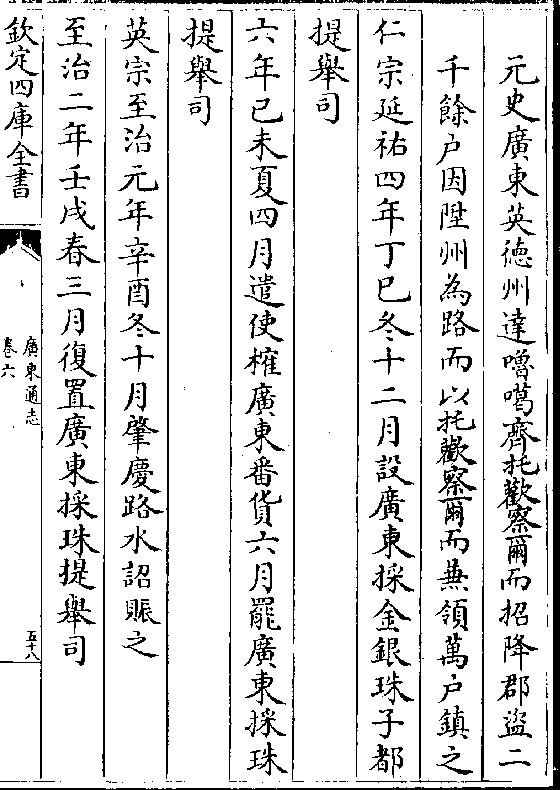 元史廣東英德州達嚕噶齊托歡察爾而招降郡盜二
千餘户因陞州為路而以托歡察爾而兼領萬户鎮之
仁宗延祐四年丁巳冬十二月設廣東採金銀珠子都
提舉司
六年己未夏四月遣使榷廣東番貨六月罷廣東採珠
提舉司
英宗至治元年辛酉冬十月肇慶路水詔賑之
至治二年壬戌春三月復置廣東採珠提舉司
欽定四庫全書
廣東通志
卷六
五十八